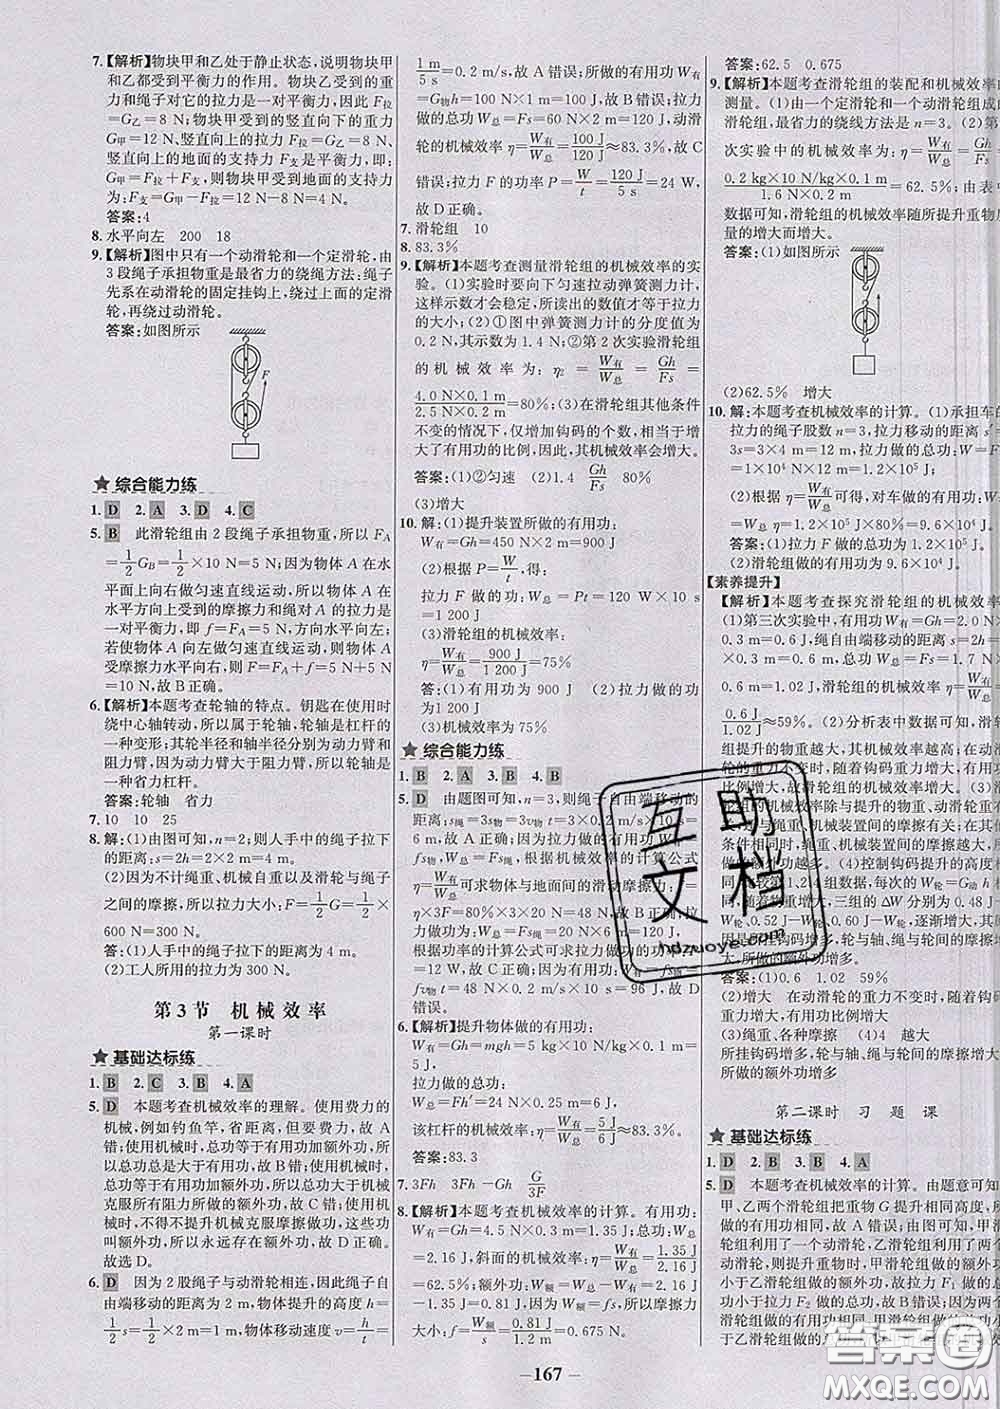 7.【解析】物块甲和乙处于静止状态,说明物块甲
和乙都受到平衡力的作用。物块乙受到的重
力和绳子对它的拉力是一对平衡力,因此 F拉
=G乙=8 N,物块甲受到的竖直向下的重力
G甲=12 N,竖直向上的拉力 F拉=G乙=8 N,
竖直向上的地面的支持力 F支是平衡力,即:
G甲=F拉+F支;则物块甲受到地面的支持力
为:F支=G甲-F拉=12 N-8 N=4 N。
答案:4
8. 水平向左 200 18
9.【解析】图中只有一个动滑轮和一个定滑轮,由
3 段绳子承担物重是最省力的绕绳方法:绳子
先系在动滑轮的固定挂钩上,绕过上面的定滑
轮,再绕过动滑轮。
答案:如图所示
F
★ 综合能力练
1. D 2. A 3. D 4. C
5. B 此滑轮组由 2 段绳子承担物重,所以 FA
=1/2 GB=1/2×10 N=5 N。因为物体 A 在水
平面上向右做匀速直线运动,所以物体 A 在
水平方向上受到的摩擦力和绳对 A 的拉力是
一对平衡力,即 f=FA=5 N,方向水平向左;若
使物体 A 向左做匀速直线运动,则物体 A
受摩擦力水平向右,则 F=FA+f=5 N+5 N
=10 N。故 B 正确。
6.【解析】本题考查轮轴的特点。钥匙在使用时
绕中心轴转动,所以属于轮轴,轮轴是杠杆的
一种变形;其轮半径和轴半径分别为动力臂和
阻力臂,因为动力臂大于阻力臂,所以轮轴是
一种省力杠杆。
答案:轮轴 省力
7. 10 10 25
8. 解:(1)由图可知,n=2;则人手中的绳子拉下
的距离:s=2h=2×2 m=4 m。
(2)因为不计绳重、机械自重以及滑轮与绳子
之间的摩擦,所以拉力大小:F=1/2 G=1/2×
600 N=300 N。
答:(1)人手中的绳子拉下的距离为 4 m。
(2)工人所用的拉力为 300 N。
第 3 节 机械效率
第一课时
★ 基础达标练
1. B 2. C 3. B 4. A
5. D 本题考查机械效率的理解。使用费力的
机械,例如钓鱼竿,省距离,但要费力,故 A
错;使用机械时,总功等于有用功加额外功,所
以总功总是大于有用功,故 B 错;总功等于有
用功与额外功之和,额外功是人们利用机械
克服所有摩擦力所做的功,故 C 错;使用机
械时,不得不提升机械克服摩擦力做功,这些功
叫额外功,所以永远存在额外功。故 D 正确。
故选 D。
6. D 因为 2 股绳子与动滑轮相连,因此绳子自
由端移动的距离为 2 m,物体提升的高度 h=
1/2 s=1/2×2 m=1 m,物体移动速度 v=h/t=
1 m/5 s=0.2 m/s,故 A 错误;所做的有用功 W有
=G物h=100 N×1 m=100 J,故 B 错误;拉力
做的总功 W总=Fs=60 N×2 m=120 J,动滑
轮的机械效率 η=W有/W总=100 J/120 J≈83.3%,故 C
错误;拉力 F 的功率 P=W/t=120 J/5 s=24 W,
故 D 正确。
7. 滑轮组 10
8. 83.3%
9.【解析】本题考查测量滑轮组的机械效率的实
验。(1)实验时要向下匀速拉动弹簧测力计,
这样示数才会稳定,所读出的数值才等于拉力
的大小;(2)①图中弹簧测力计的分度值为
0.2 N,其示数为 1.4 N;②第 2 次实验滑轮组
的机械效率为:η2=W有/W总=Gh/Fs=
4.0 N×0.1 m/2.5 N×0.2 m=80%;(3)在滑轮组其他条件
不变的情况下,仅增加钩码的个数,相当于增
大了有用功的比例,因此,其机械效率会增大。
答案:(1)②匀速 (2)1.4 Gh/Fs 80%
(3)增大
10. 解:(1)提升装置所做的有用功:
W有=Gh=450 N×2 m=900 J
(2)根据 P=W/t,得:
拉力做的总功:W总=Pt=120 W×10 s
=1 200 J
(3)滑轮组的机械效率:
η=W有/W总=900 J/1 200 J=75%
答:(1)有用功为 900 J (2)拉力做的功
为1 200 J
(3)机械效率为 75%
★ 综合能力练
1. B 2. A 3. B 4. B
5. D 由题图可知,n=3,则绳子自由端移动的
距离:s绳=3s物=3v物t=3×0.2 m/s×10 s=
6 m,故 A 错误;因为有用功 W有=
fs物,W总=Fs绳,根据机械效率的计算公式
η=W有/W总可求物体与地面间的滑动摩擦力
η×3F=80%×3×20 N=48 N,拉力
做功:W总=Fs绳=20 N×6 m=120 J,
根据功率的计算公式可求拉力做功的功率
=12 W,故 C 错误;有用功
W有=fs物=48 N×0.2 m/s×10 s=96 J,故 D
错误。
6.【解析】提升物体做的有用功:
W有=Gh=mgh=5 kg×10 N/kg×0.1 m=
5 J,
拉力做的总功:
W总=Fh′=24 N×0.25 m=6 J,
该杠杆的机械效率:η=W有/W总=5 J/6 J≈83.3%。
答案:83.3
7. 3Fh 3Fh-Gh G/3F
8.【解析】本题考查机械效率的计算。有用功:
W有=Gh=4.5 N×0.3 m=1.35 J;总功:W总=
=2.16 J,斜面的机械效率:η=W有/W总=1.35 J/2.16 J=
62.5%;额外功:W额=W总-W有=2.16 J
-1.35 J=0.81 J,因为 W额=fs,所以摩擦力
大小:f=W额/s=0.81 J/1.2 m=0.675 N。
答案:62.5 0.675
9.【解析】本题考查滑轮组的装配和机械效率的
测量。(1)由一个定滑轮和一个动滑轮组成的
滑轮组,最省力的绕线方法是 n=3。(2)第
次实验中的机械效率为:η=W有/W总=Gh/Fs=
0.2 kg×10 N/kg×0.1 m/1.6 N×0.2 m=62.5%;由表中
数据可知,滑轮组的机械效率随所提升重物质
量的增大而增大。
答案:(1)如图所示
(2)62.5% 增大
10. 解:本题考查机械效率的计算。(1)承担车的
拉力的绳子股数 n=3,拉力移动的距离 s′=
3s=3×4 m=12 m
=1×10⁴ N×12 m=1.2×10⁵ J
(2)根据 η=W有/W总 可得,有用功:W有=η
W总=1.2×10⁵ J×80%=9.6×10⁴ J
答案:(1)拉力 F 做的总功为 1.2×10⁵ J
(2)滑轮组的有用功为 9.6×10⁴ J
【素养提升】
【解析】本题考查探究滑轮组的机械效率
(1)第三次实验中,有用功:W有=Gh=2.0 N×
0.3 m=0.6 J;绳自由端移动的距离 s=
=0.6 m,总功 W总=Fs=1.7 N×
0.6 m=1.02 J,
0.6 J/1.02 J≈59%。(2)分析表中数据可知,
组提升的物重越大,其机械效率越高;在动滑
轮的重力不变时,提升的钩码越重,有用功
比例增大,
轮组的机械效率除与提升的物重、动滑轮重
与绳重、机械装置间的摩擦有关;
条件相同时,机械装置间的摩擦越大,
做的额外功越多。(4)控制钩码提升的高度相
同,比较第1,2,4组数据,每次的 W轮=G动h相
同,三组的ΔW分别为0.48 J-
W轮、0.52 J-W轮、0.60 J-W轮,逐渐增大,其
原因是所挂钩码增多,轮与轴、绳与轮间的
摩擦增大。
答案:(1)0.6 1.02 59%
(2)增大 在动滑轮的重力不变时,提升的钩
码越重,有用功比例增大
(3)绳重、各种摩擦 (4)4 越大
所挂钩码增多,轮与轴、绳与轮间的摩擦增大,
所做的额外功增多
第二课时 习题课
★ 基础达标练
1. D 2. B 3. B 4. A
5. D 本题考查机械效率的计算。由题意可知,
甲、乙两个滑轮组把重物 G 提升相同高度,所
做的有用功相同,故 A 错误。由图可知,甲滑
轮组利用了一个动滑轮,乙滑轮组利用了两个
动滑轮,则提升重物时,甲滑轮组做的额外功
小于乙滑轮组做的额外功,故拉力 F₁ 做的总功
小于拉力 F₂ 做的总功,故
于乙滑轮组做的有用功相同,甲滑轮组做的总功
— 167 —
互助文档
hdzuoye.com
答案圈
MXQE.COM